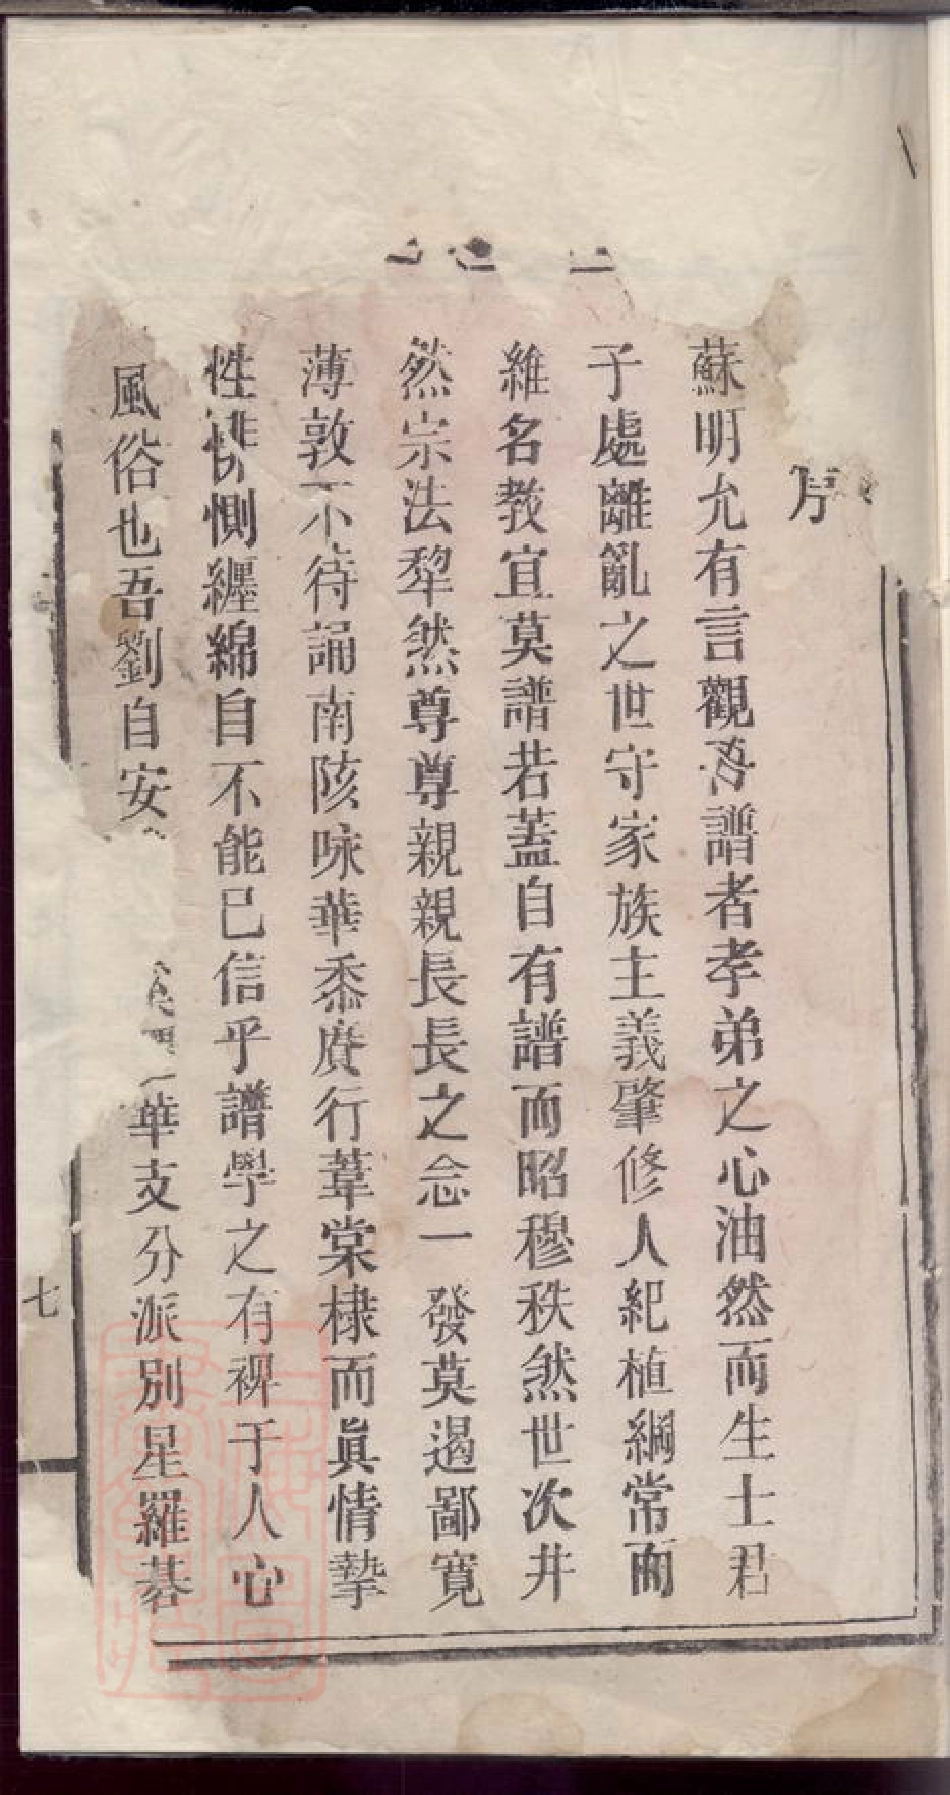 序
蘇明允有言觀吾譜者孝弟之心油然而生士君
子處離亂之世守家族主義肇修人紀植綱常而
維名教宜莫譜若蓋自有譜而昭穆秩然世次井
然宗法犂然尊尊親親長長之念一發莫遏鄙寬
薄敦不待誦南陔咏華黍賡行葦棠棣而眞情摯
性悱惻纏綿自不能已信乎譜學之有裨于人心
風俗也吾劉自安華支分派別星羅碁
七